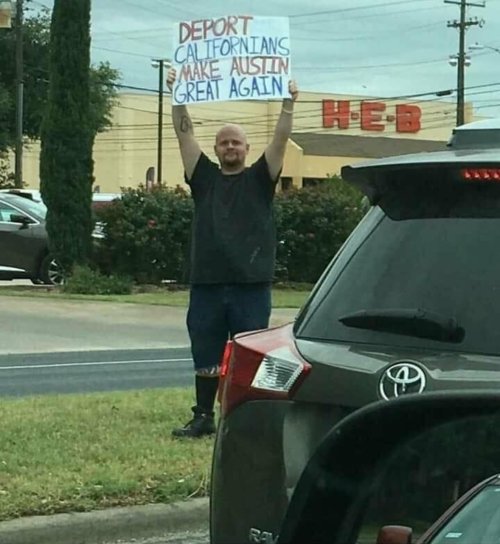 DEPORT
CALIFORNIANS
MAKE AUSTIN
GREAT AGAIN
H-E-B